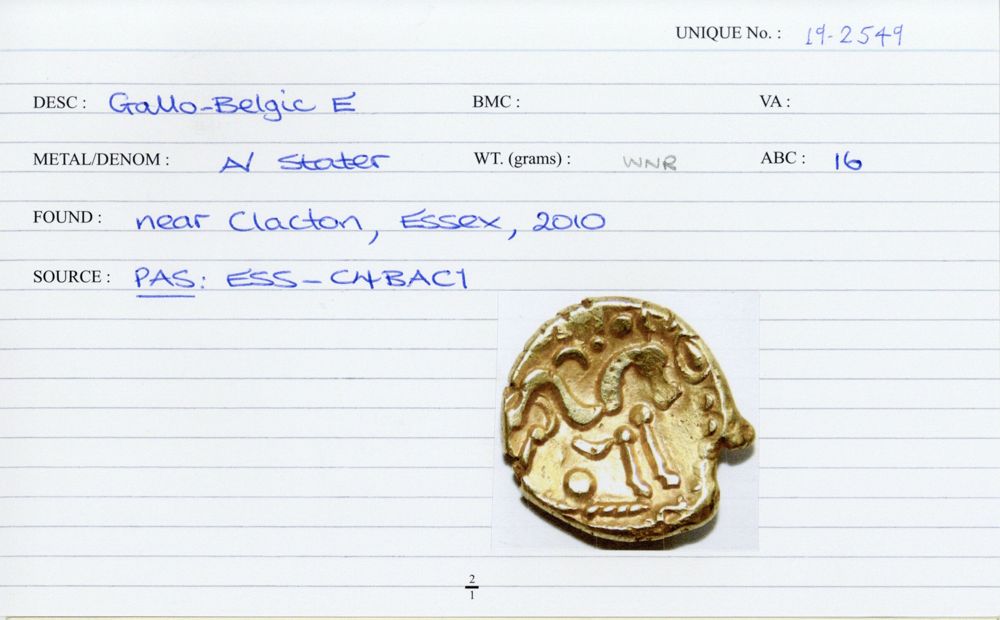 UNIQUE No. : 19-2549
DESC : Gallo-Belgic E BMC : VA :
METAL/DENOM : A/ Stater WT. (grams) : WNR ABC : 16
FOUND : near Clacton, Essex, 2010
SOURCE : PAS: ESS-C4BAC1
2
1